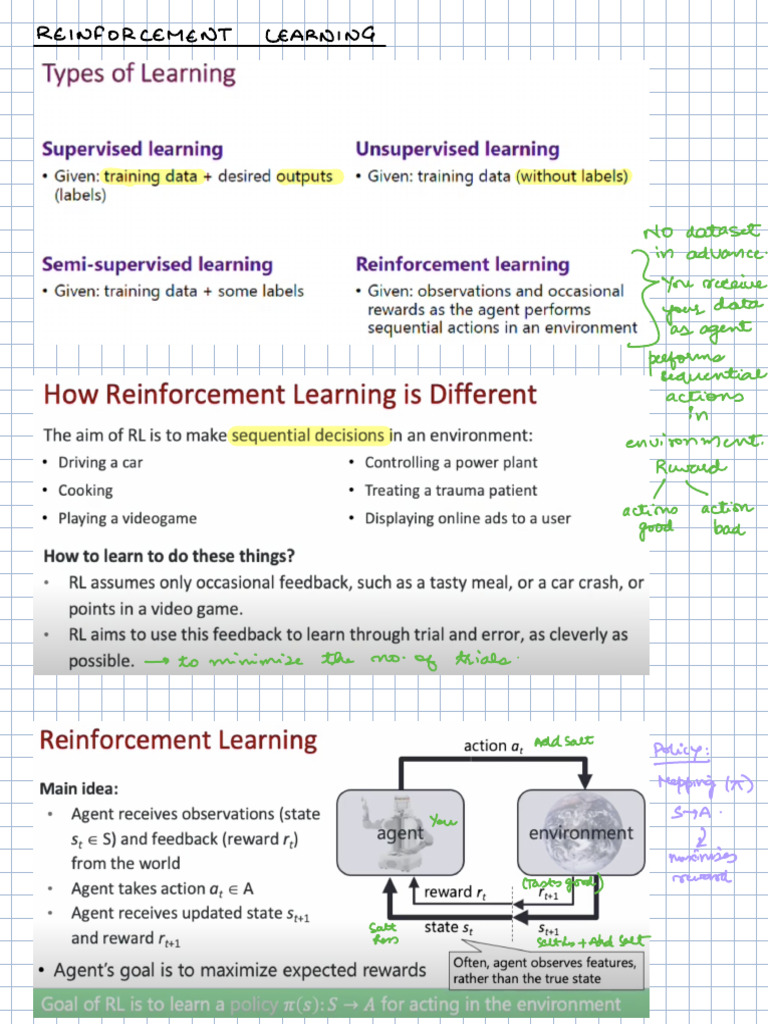 REINFORCEMENT LEARNING
Types of Learning
Supervised learning
• Given: training data + desired outputs
(labels)
Unsupervised learning
• Given: training data (without labels)
Semi-supervised learning
• Given: training data + some labels
Reinforcement learning
• Given: observations and occasional
rewards as the agent performs
sequential actions in an environment
No dataset
in advance.
You receive
your data
as agent
performs
sequential
actions
in
environment.
Reward
actions
good
action
bad
How Reinforcement Learning is Different
The aim of RL is to make sequential decisions in an environment:
• Driving a car
• Cooking
• Playing a videogame
• Controlling a power plant
• Treating a trauma patient
• Displaying online ads to a user
How to learn to do these things?
• RL assumes only occasional feedback, such as a tasty meal, or a car crash, or
points in a video game.
• RL aims to use this feedback to learn through trial and error, as cleverly as
possible. → to minimize the no. of trials.
Reinforcement Learning
Main idea:
• Agent receives observations (state
s_t ∈ S) and feedback (reward r_t)
from the world
• Agent takes action a_t ∈ A
• Agent receives updated state s_{t+1}
and reward r_{t+1}
• Agent's goal is to maximize expected rewards
action a_t Add Salt
agent You
environment
(Tastes good)
reward r_t r_{t+1}
state s_t s_{t+1}
Salt
less
Salt less + Add Salt
Often, agent observes features,
rather than the true state
Goal of RL is to learn a policy π(s): S → A for acting in the environment
Policy:
Mapping (π)
S→A.
maximises
reward